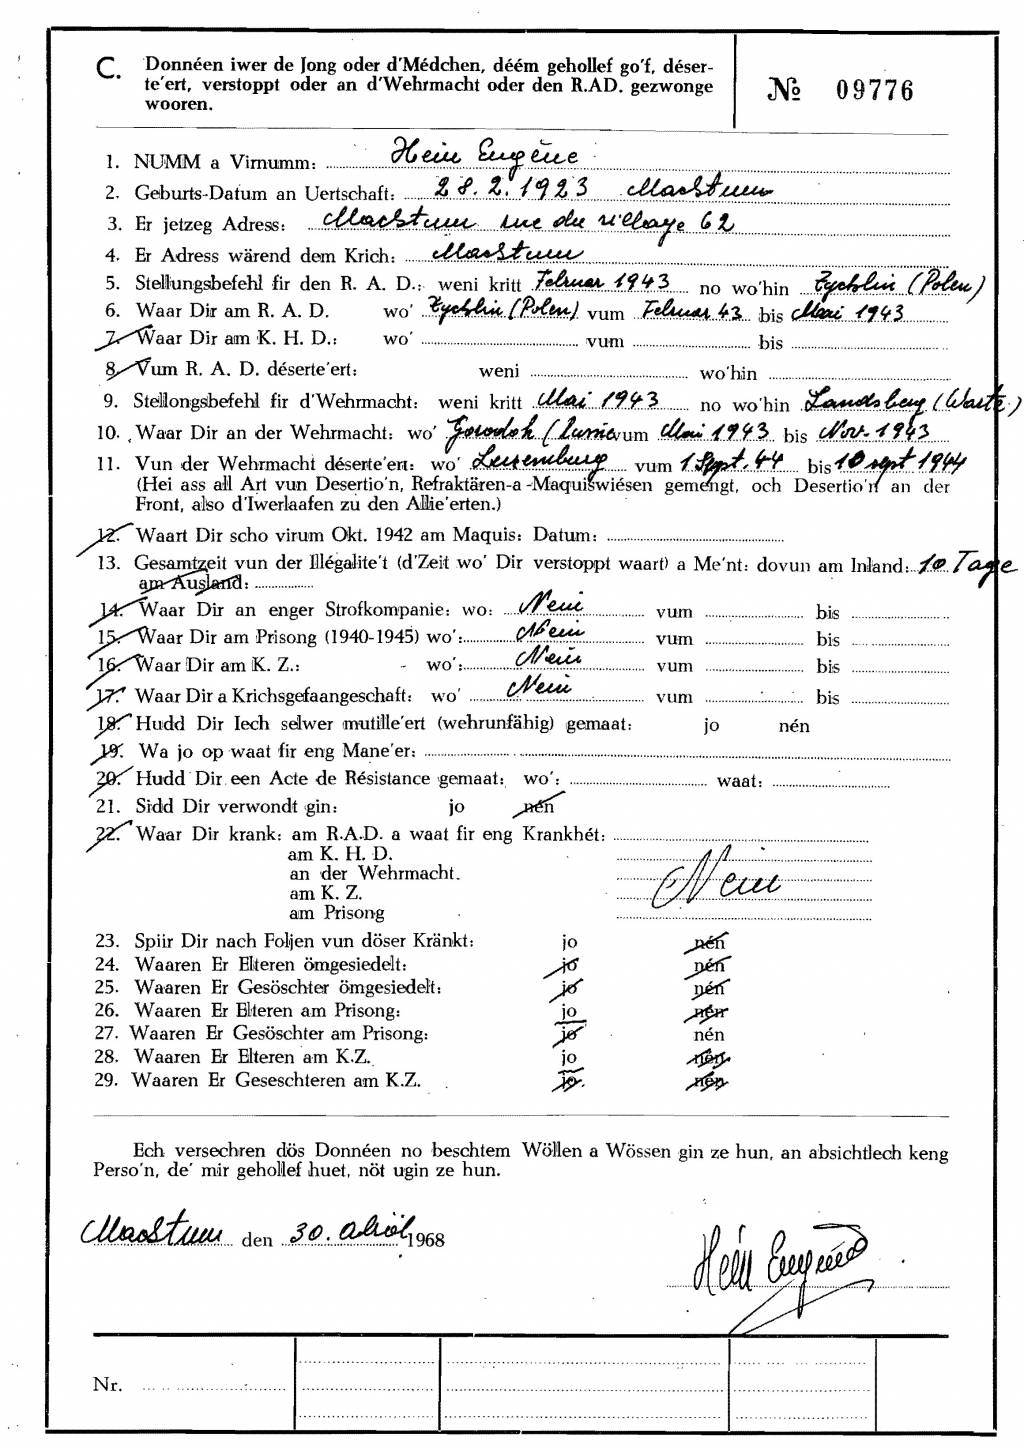 C. Donnéen iwer de Jong oder d'Médchen, déém gehollef go'f, déser-
te'ert, verstoppt oder an d'Wehrmacht oder den R.AD. gezwonge
wooren.
№ 09776
1. NUMM a Virnumm: Hein Eugène
2. Geburts-Datum an Uertschaft: 28.2.1923 Machtum
3. Er jetzeg Adress: Machtum rue du village 62
4. Er Adress wärend dem Krich: Machtum
5. Stellungsbefehl fir den R. A. D.: weni kritt Februar 1943 no wo'hin Zychlin (Polen)
6. Waar Dir am R. A. D. wo' Zychlin (Polen) vum Februar 43 bis Mai 1943
7. Waar Dir am K. H. D.: wo' vum bis
8. Vum R. A. D. déserte'ert: weni wo'hin
9. Stellongsbefehl fir d'Wehrmacht: weni kritt Mai 1943 no wo'hin Landsberg (Warte)
10. Waar Dir an der Wehrmacht: wo' Gorodok ( vum Mai 1943 bis Nov. 1943
11. Vun der Wehrmacht déserte'ert: wo' Luxemburg vum 1 Sept. 44 bis 10 sept 1944
(Hei ass all Art vun Desertio'n, Refraktären-a-Maquiswiésen gemengt, och Desertio'n an der
Front, also d'Iwerlaafen zu den Allie'erten.)
12. Waart Dir scho virum Okt. 1942 am Maquis: Datum:
13. Gesamtzeit vun der Illégalite't (d'Zeit wo' Dir verstoppt waart) a Me'nt: dovun am Inland: 10 Tage
am Ausland:
14. Waar Dir an enger Strofkompanie: wo: Nein vum bis
15. Waar Dir am Prisong (1940-1945) wo': Nein vum bis
16. Waar Dir am K. Z.: - wo': Nein vum bis
17. Waar Dir a Krichsgefaangeschaft: wo' Nein vum bis
18. Hudd Dir Iech selwer mutille'ert (wehrunfähig) gemaat: jo nén
19. Wa jo op waat fir eng Mane'er:
20. Hudd Dir een Acte de Résistance gemaat: wo': waat:
21. Sidd Dir verwondt gin: jo nén
22. Waar Dir krank: am R.A.D. a waat fir eng Krankhét:
am K. H. D.
an der Wehrmacht.
am K. Z.
am Prisong
Nein
23. Spiir Dir nach Foljen vun döser Kränkt: jo nén
24. Waaren Er Elteren ömgesiedelt: jo nén
25. Waaren Er Gesöschter ömgesiedelt: jo nén
26. Waaren Er Elteren am Prisong: jo nén
27. Waaren Er Gesöschter am Prisong: jo nén
28. Waaren Er Elteren am K.Z. jo nén
29. Waaren Er Geseschteren am K.Z. jo nén
Ech versechren dös Donnéen no beschtem Wöllen a Wössen gin ze hun, an absichtlech keng
Perso'n, de' mir gehollef huet, nöt ugin ze hun.
Machtum den 30. 1968
Hein Eugène
Nr.